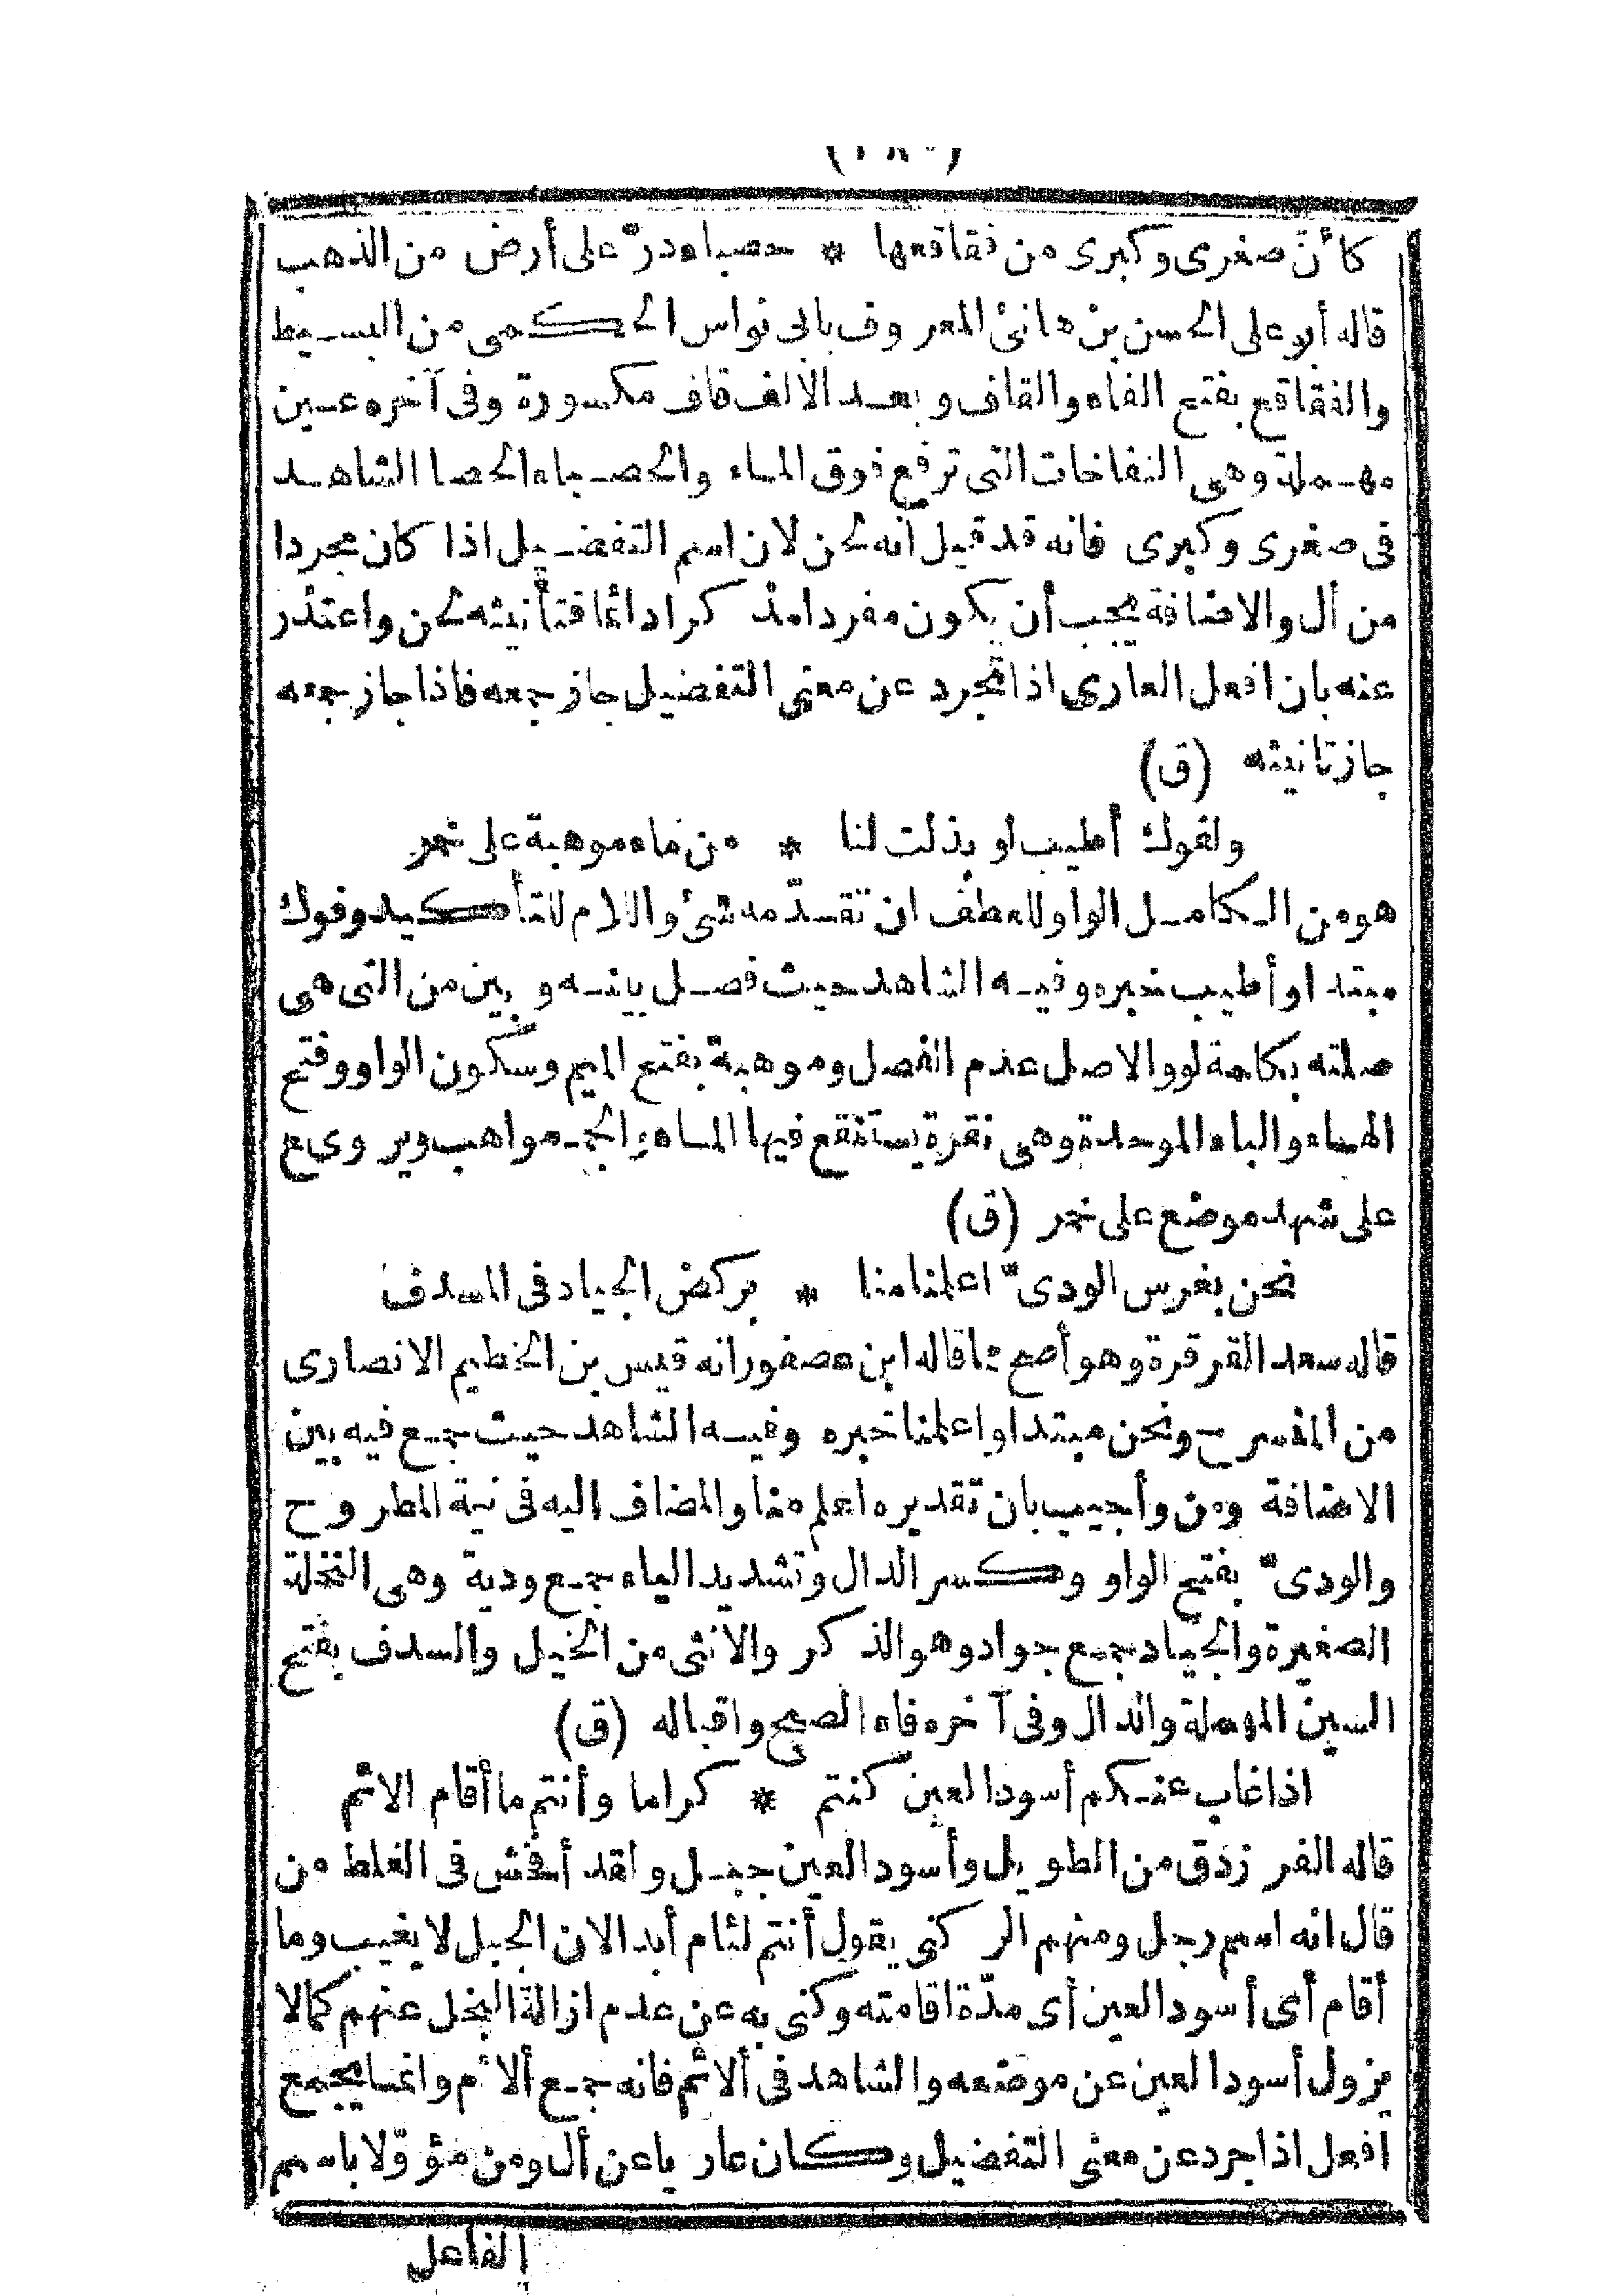 كأنّ صغرى وكبرى من فقاقعها * حصباء درّ على أرض من الذهب
قاله أبو على الحسن بن هانئ المعروف بابى نواس الحكمى من البسيط
والفقاقع بفتح الفاء والقاف وبعد الالف قاف مكسورة وفى آخره عين
مهملة وهى النفاخات التى ترفع فوق الماء والحصباء الحصا الشاهد
فى صغرى وكبرى فانه قد قيل انه لحن لان اسم التفضيل اذا كان مجردا
من أل والاضافة يجب أن يكون مفردا مذكرا دائما فتأنيثه لحن واعتذر
عنه بان افعل العارى اذا تجرد عن معنى التفضيل جاز جمعه فاذا جاز جمعه
جاز تانيثه (ق)
ولفوك أطيب لو بذلت لنا * من ماء موهبة على خمر
هو من الكامل الواو للعطف ان تقدّمه شئ واللام للتأكيد وفوك
مبتدا وأطيب خبره وفيه الشاهد حيث فصل بينه وبين من التى هى
صلته بكلمة لو والاصل عدم الفصل وموهبة بفتح الميم وسكون الواو وفتح
الهاء والباء الموحدة وهى نقرة يستنقع فيها الماء والجمع مواهب ويروى
على شهد موضع على خمر (ق)
نحن بغرس الودىّ اعلمنا منا * بركض الجياد فى السدف
قاله سعد القرقرة وهو أصح مما قاله ابن عصفور انه قيس بن الخطيم الانصارى
من المنسرح ونحن مبتدا واعلمنا خبره وفيه الشاهد حيث جمع فيه بين
الاضافة ومن وأجيب بان تقديره اعلم منا والمضاف اليه فى نية المطروح
والودىّ بفتح الواو وكسر الدال وتشديد الياء جمع ودية وهى النخلة
الصغيرة والجياد جمع جواد وهو الذكر والانثى من الخيل والسدف بفتح
السين المهملة والدال وفى آخره فاء الصبح واقباله (ق)
اذا غاب عنكم أسود العين كنتم * كراما وأنتم ما أقام الائم
قاله الفرزدق من الطويل وأسود العين جبل ولقد أفحش فى الغلط من
قال انه اسم رجل ومنهم الركنى يقول أنتم لئام أبدا لان الجبل لا يغيب وما
أقام أى أسود العين أى مدّة اقامته وكنى به عن عدم ازالة البخل عنهم كما لا
يزول أسود العين عن موضعه والشاهد فى ألائم فانه جمع ألأم وانما يجمع
افعل اذا جرد عن معنى التفضيل وكان عاريا عن أل ومن مؤوّلا باسم
الفاعل